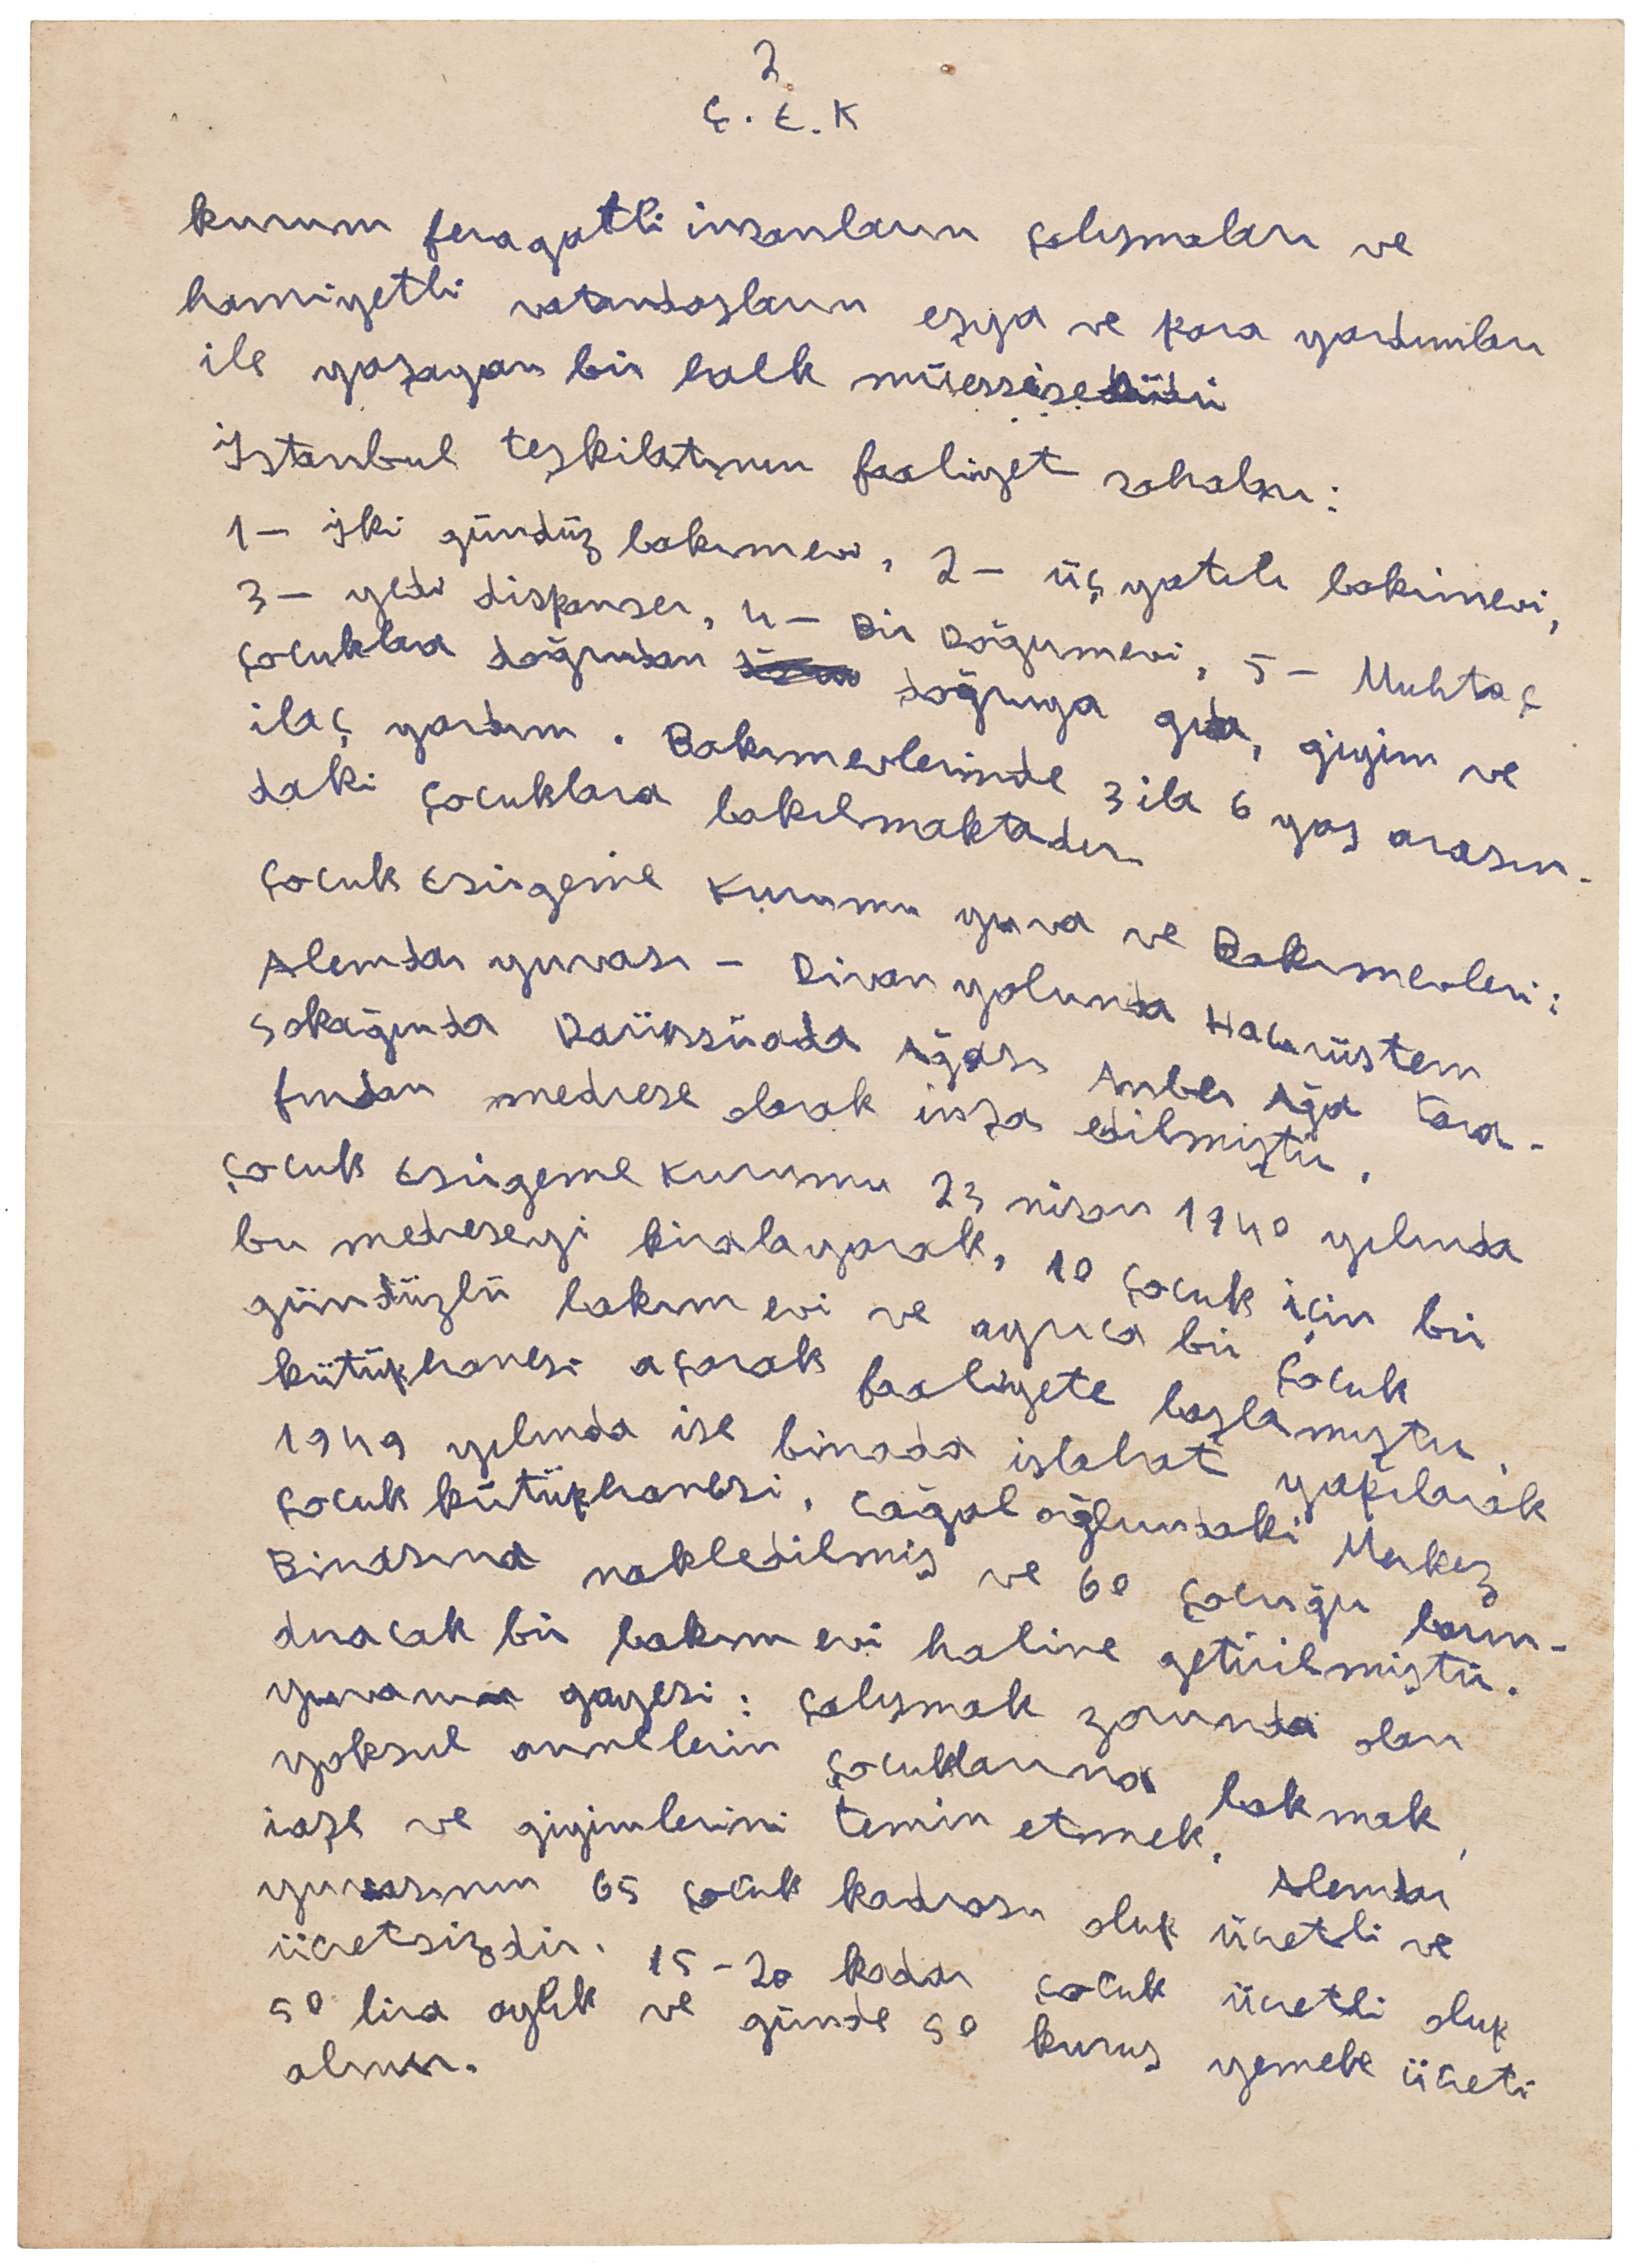 2
Ç. E. K
kurum feragatli insanların çalışmaları ve
hamiyetli vatandaşların eşya ve para yardımları
ile yaşayan bir halk müessisesidir
İstanbul teşkilatının faaliyet sahaları:
1- İki gündüz bakımevi, 2- üç yatılı bakımevi,
3- yedi dispanser, 4- Bir Doğumevi, 5- Muhtaç
çocuklara doğrudan doğruya gıda, giyim ve
ilaç yardımı. Bakımevlerinde 3 ila 6 yaş arasın-
daki çocuklara bakılmaktadır.
Çocuk Esirgeme Kurumu yuva ve Bakımevleri:
Alemdar yuvası - Divan yolunda Hacırüstem
sokağında Darüssüada Ağası Anber Ağa tara-
fından medrese olarak inşa edilmiştir.
Çocuk Esirgeme Kurumu 23 nisan 1940 yılında
bu medreseyi kiralayarak, 10 çocuk için bir
gündüzlü bakım evi ve ayrıca bir çocuk
kütüphanesi açarak faaliyete başlamıştır.
1949 yılında ise binada islahat yapılarak
çocuk kütüphanesi, Cağaloğlundaki Merkez
Binasına nakledilmiş ve 60 çocuğu barın-
dıracak bir bakım evi haline getirilmiştir.
yuvanın gayesi: çalışmak zorunda olan
yoksul annelerin çocuklarına bakmak,
iaşe ve giyimlerini temin etmek. Alemdar
yuvasının 65 çocuk kadrosu olup ücretli ve
ücretsizdir. 15-20 kadar çocuk ücretli olup
50 lira aylık ve günde 50 kuruş yemek ücreti
alınır.